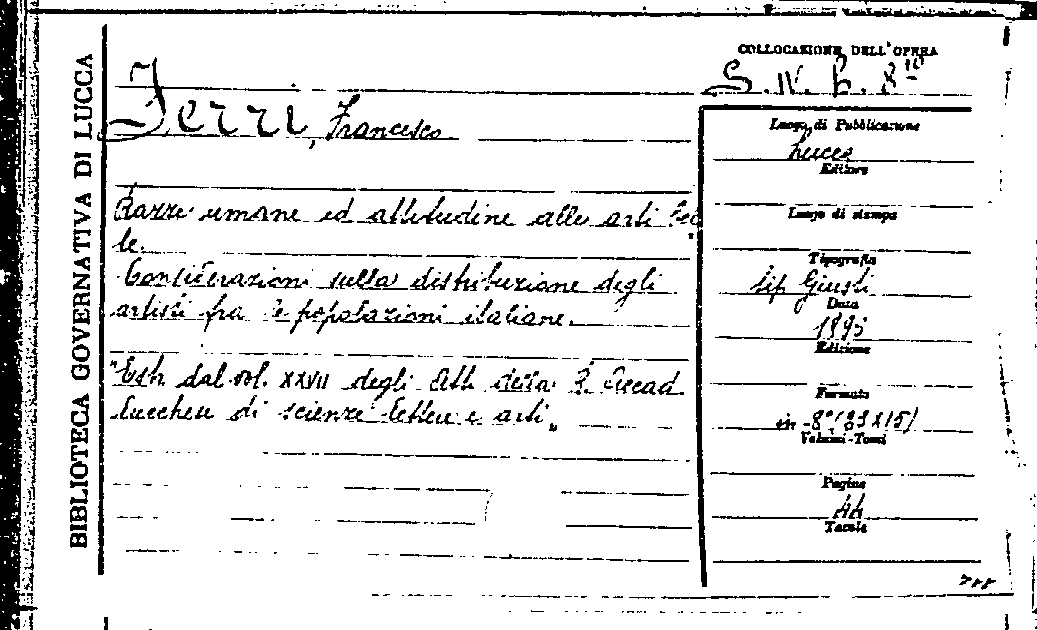 BIBLIOTECA GOVERNATIVA DI LUCCA
COLLOCAZIONE DELL'OPERA
Ferri, Francesco
Razze umane ed attitudine alle arti bel
le.
Considerazioni sulla distribuzione degli
artisti fra le popolazioni italiane.
"Estr. dal vol. XXVII degli Atti della R. Accad.
Lucchese di scienze lettere e arti"
Luogo di Pubblicazione
Lucca
Editore
Luogo di stampa
Tipografia
tip. Giusti
Data
1895
Edizione
Formato
in-8°
Volumi-Tomi
Pagine
44
Tavole